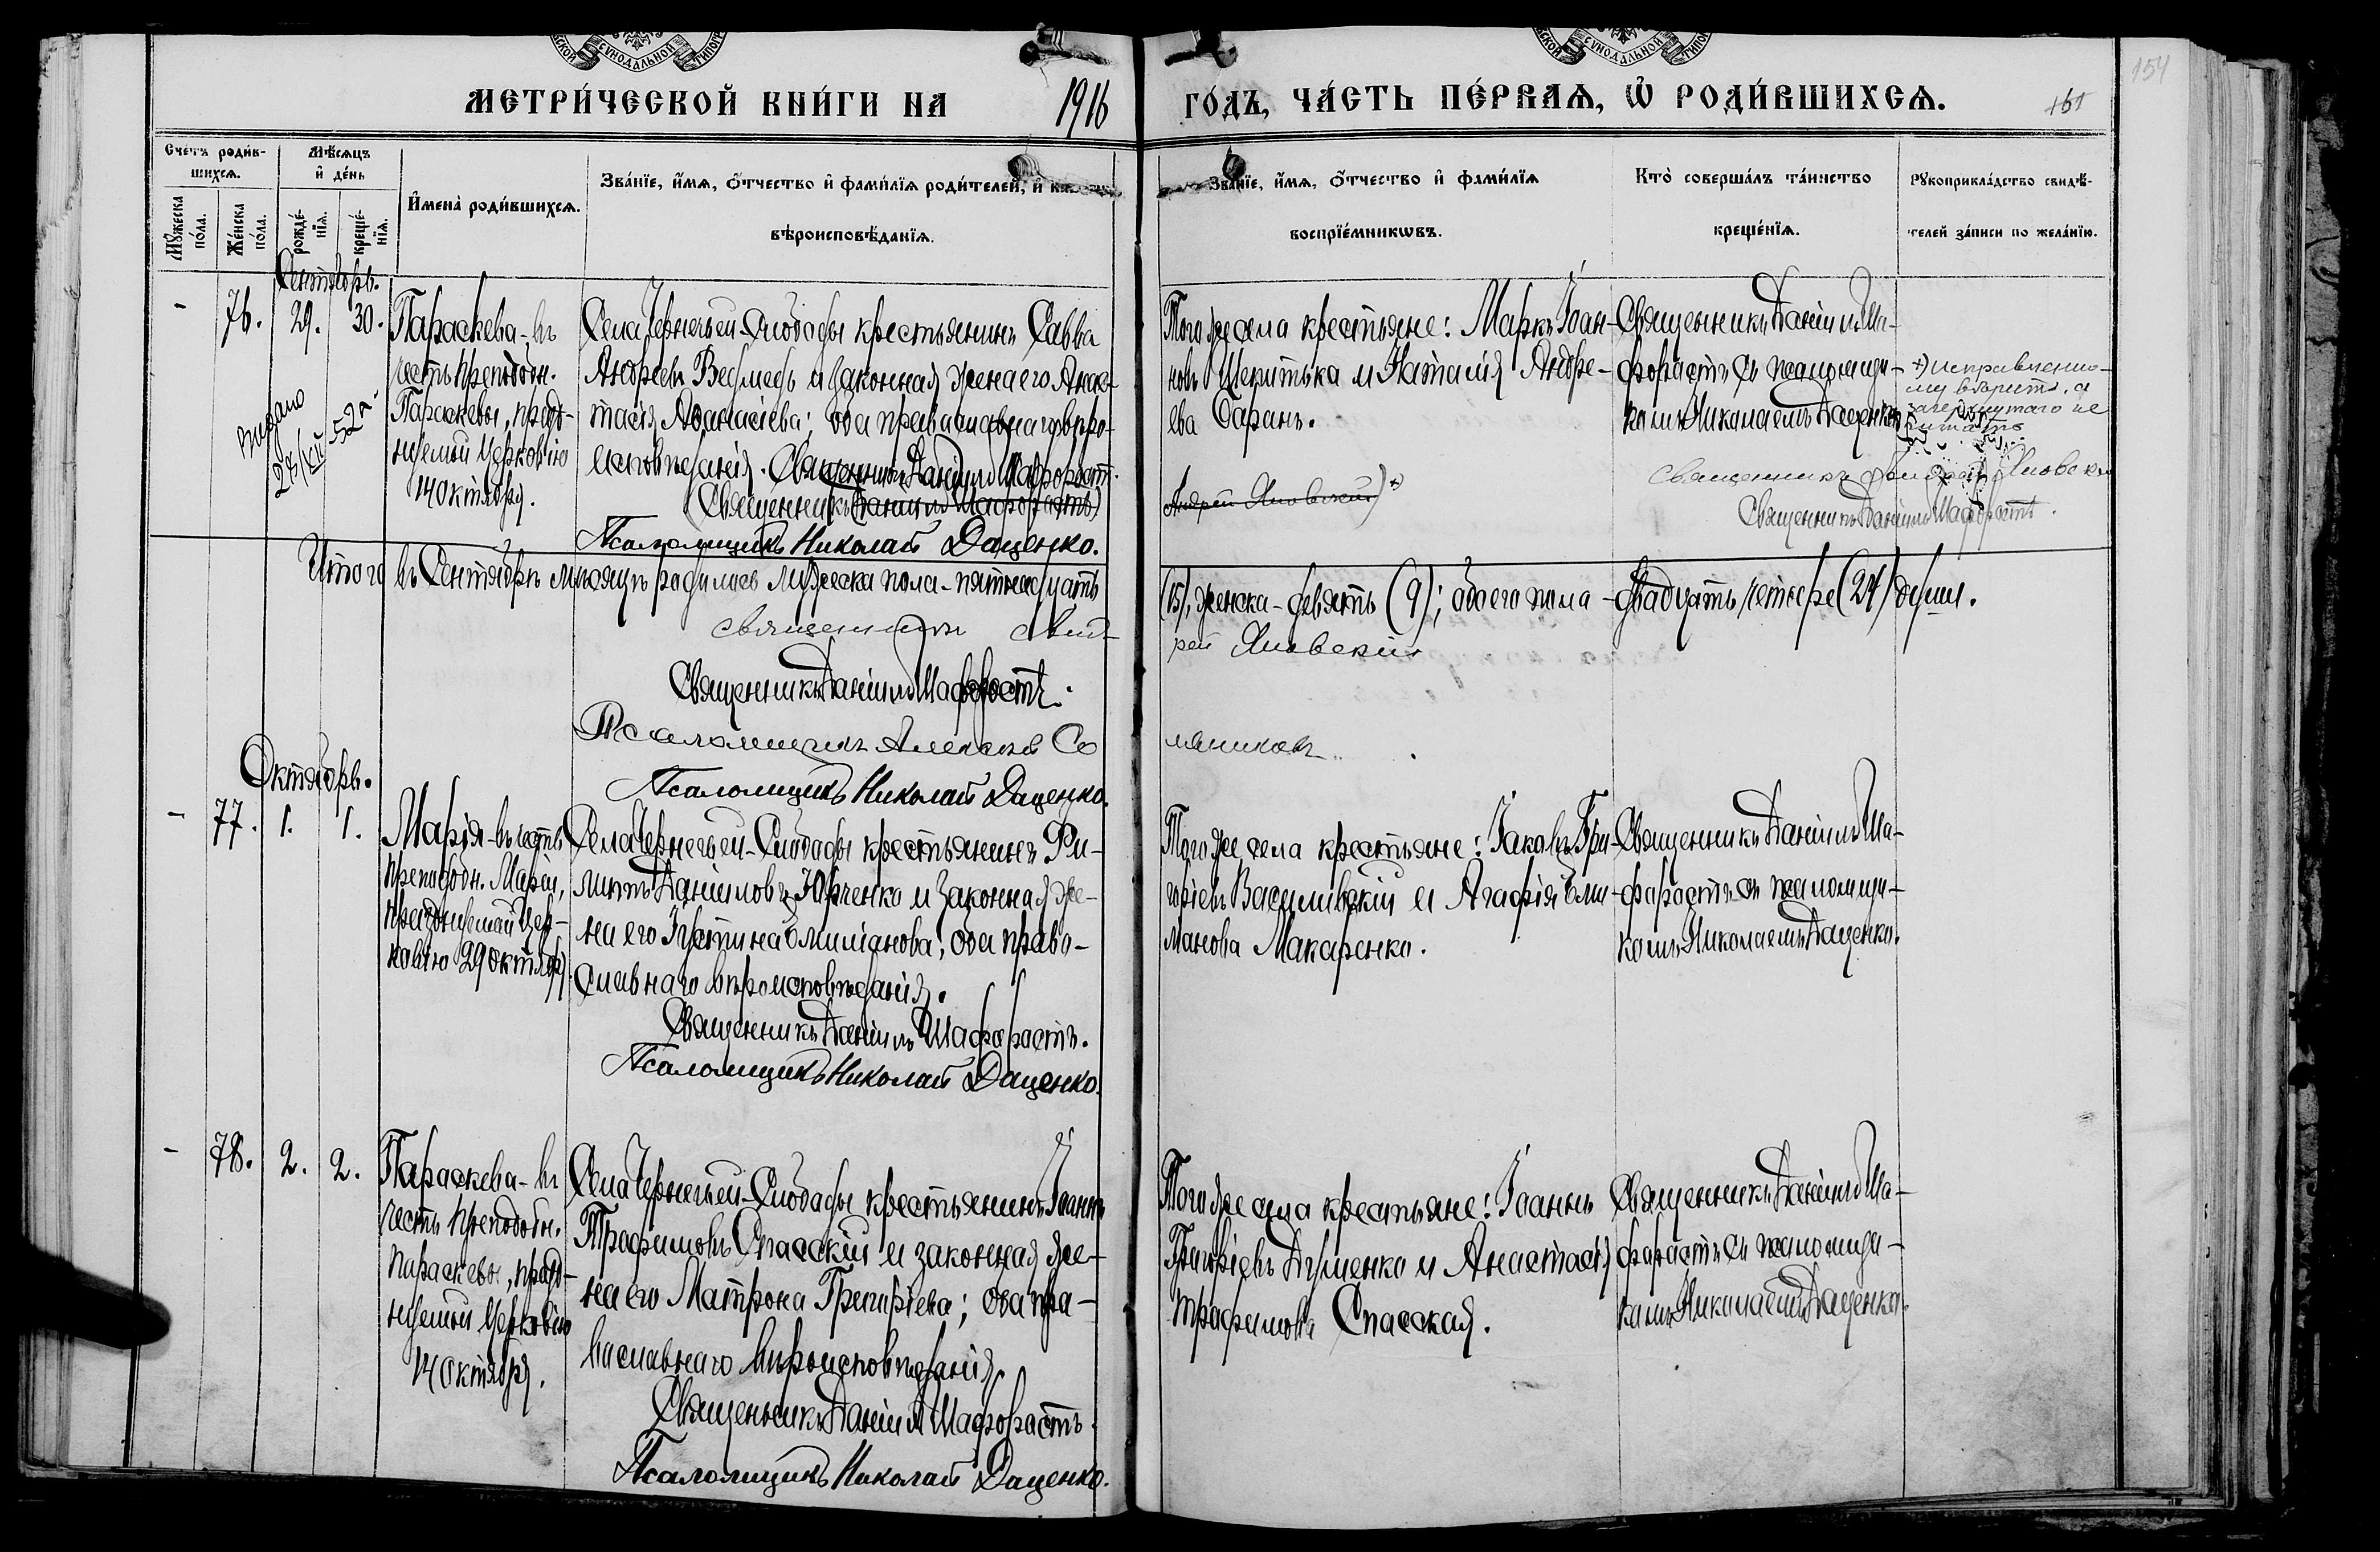 СУНОДАЛЬНОЙ
СУНОДАЛЬНОЙ
МЕТРИ́ЧЕСКОЙ КНИ́ГИ НА 1916 ГО́ДЪ, ЧА́СТЬ ПЕ́РВАѦ, Ѽ РОДИ́ВШИХСѦ.
154
161
Счетъ роди́в-
шихсѧ.
Мѣ́сѧцъ
и҆ де́нь
Мꙋ́жеска
по́ла.
Же́нска
по́ла.
рожде́-
нїѧ.
креще́-
нїѧ.
И҆мена̀ роди́вшихсѧ.
Зва́нїе, и҆́мѧ, ѻ҆́тчество и҆ фами́лїѧ роди́телей, и҆ ка
вѣроисповѣ́данїѧ.
Зва́нїе, и҆́мѧ, ѻ҆́тчество и҆ фами́лїѧ
воспрїе́мникѡвъ.
Кто̀ соверша́лъ та́инство
креще́нїѧ.
Рꙋкоприкла́дство свидѣ́-
телей за́писи по жела́нїю.
Сентябрь.
- 76. 29. 30.
Параскева - въ
честь преподобн.
Параскевы, празд-
нуемой Церковію
14 Октября.
Видано
28/XII 52 г.
Села Чернечьей-Слободы крестьянинъ Савва
Андреевъ Ведмедь и законная жена его Анас-
тасія Аѳанасіева; оба православнаго вѣро-
исповѣданія. Священникъ Даніилъ Шафорость.
Священникъ (Даніилъ Шафоростъ)
Псаломщикъ Николай Даценко.
Того же села крестьяне: Маркъ Іоан-
новъ Шеритька и Наталія Андре-
ева Саранъ.
Андрей Яновскій) +)
Священникъ Даніилъ Ша-
форостъ съ псаломщи-
комъ Николаемъ Даценко.
+) исправленно-
му вѣрить, а
зачеркнутаго не
читать
Священникъ Андрей Яновскій
Священникъ Даніилъ Шафоростъ.
Итого въ Сентябрѣ мѣсяцѣ родилось мужеска пола - пятнадцать (15), женска - девять (9); обоего пола - двадцать четыре (24) души.
Священникъ Анд-
рей Яновскій
Священникъ Даніилъ Шафоростъ.
Псаломщикъ Алексѣй Со
мяниковъ.
Псаломщикъ Николай Даценко.
Октябрь.
- 77. 1. 1.
Марія - въ честь
преподобн. Маріи,
празднуемой Цер-
ковію 29 Октября.
Села Чернечьей-Слободы крестьянинъ Фи-
липпъ Даніиловъ Юрченко и законная же-
на его Іустина Емиліанова; оба право-
славнаго вѣроисповѣданія.
Священникъ Даніилъ Шафоростъ.
Псаломщикъ Николай Даценко.
Того же села крестьяне: Іаковъ Гри-
горіевъ Василивскій и Агафія Еми-
ліанова Макаренко.
Священникъ Даніилъ Ша-
форостъ съ псаломщи-
комъ Николаемъ Даценко.
- 78. 2. 2.
Параскева - въ
честь преподобн.
Параскевы, празд-
нуемой Церковію
14 Октября.
Села Чернечьей-Слободы крестьянинъ Іоаннъ
Трофимовъ Спасскій и законная же-
на его Матрона Григоріева; оба пра-
вославнаго вѣроисповѣданія.
Священникъ Даніилъ Шафоростъ.
Псаломщикъ Николай Даценко.
Того же села крестьяне: Іоаннъ
Григоріевъ Душенко и Анастасія
Трофимова Спасская.
Священникъ Даніилъ Ша-
форостъ съ псаломщи-
комъ Николаемъ Даценко.